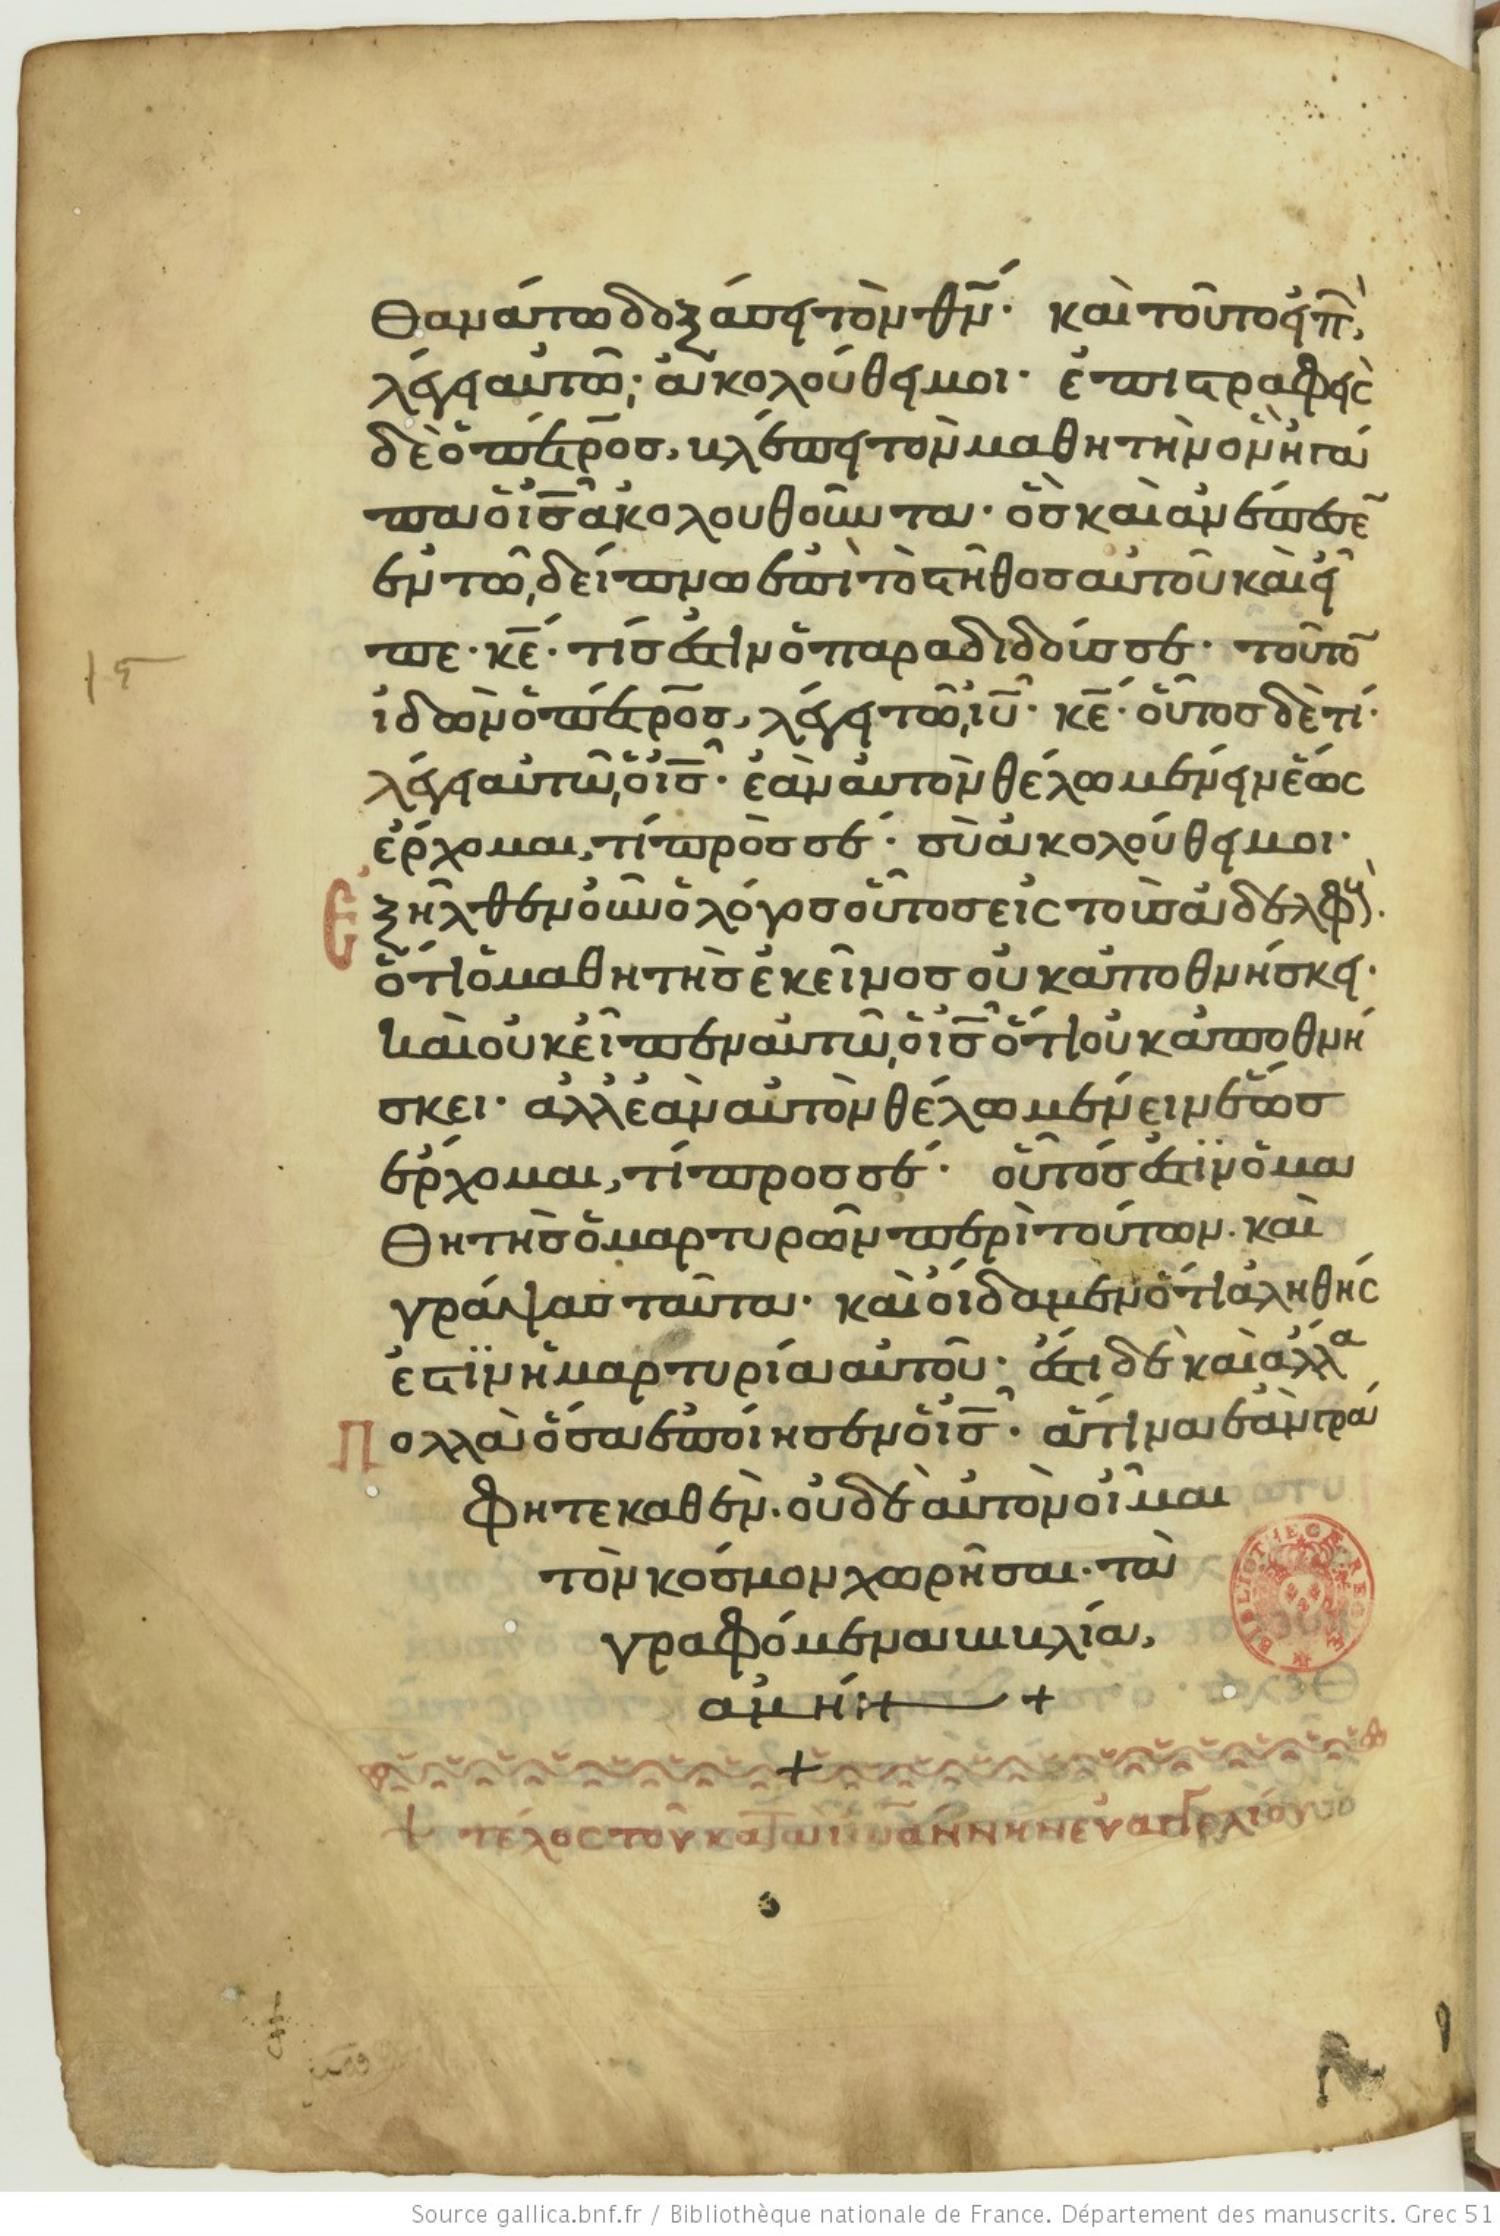 θανάτω δοξάσει τὸν θν̄· καὶ τοῦτο εἰπ̄,
λέγει αὐτῶ; ἀκολούθει μοι· ἐπιστραφεὶς
δὲ ὁ πέτρος, βλέπει τὸν μαθητὴν ὃν ἠγά
πα ὁ ις̄ ἀκολουθοῦντα· ὃς καὶ ἀνέπεσε̄
ἐν τῶ δείπνω ἐπὶ τὸ στῆθος αὐτοῦ καὶ εἶ
πε· κε̄· τίς ἐστιν ὁ παραδιδούς σε· τοῦτο̄
ἰδὼν ὁ πέτρος, λέγει τῶ ιῡ· κε̄· οὗτος δὲ τί·
λέγει αὐτῶ ὁ ις̄· ἐὰν αὐτὸν θέλω μένειν ἕως
ἔρχομαι, τί πρὸς σέ· σὺ ἀκολούθει μοι·
Ἐξῆλθεν οὖν ὁ λόγος οὗτος εἰς τοὺς ἀδελφούς·
ὅτι ὁ μαθητὴς ἐκεῖνος οὐκ ἀποθνήσκει·
καὶ οὐκ εἶπεν αὐτῶ ὁ ις̄ ὅτι οὐκ ἀποθνή
σκει· ἀλλ' ἐὰν αὐτὸν θέλω μένειν ἕως
ἔρχομαι, τί προς σέ· οὗτός ἐστϊν ὁ μα
θητὴς ὁ μαρτυρῶν περὶ τούτων. καὶ
γράψας ταῦτα· καὶ οἴδαμεν ὅτι ἀληθής
ἐστϊν ἡ μαρτυρία αὐτοῦ· ἔστι δὲ καὶ ἄλλα
Πολλὰ ὅσα ἐποίησεν ὁ ις̄· ἅτινα ἐὰν γρά
φητε καθ ἕν. οὐδὲ αὐτὸν οἶμαι
τὸν κόσμον χωρῆσαι. τὰ
γραφόμενα βιβλία,
ἀμήν +
+
+ τέλος τοῦ κατὰ ἰωάννην εὐαγγελίου
Source gallica.bnf.fr / Bibliothèque nationale de France. Département des manuscrits. Grec 51